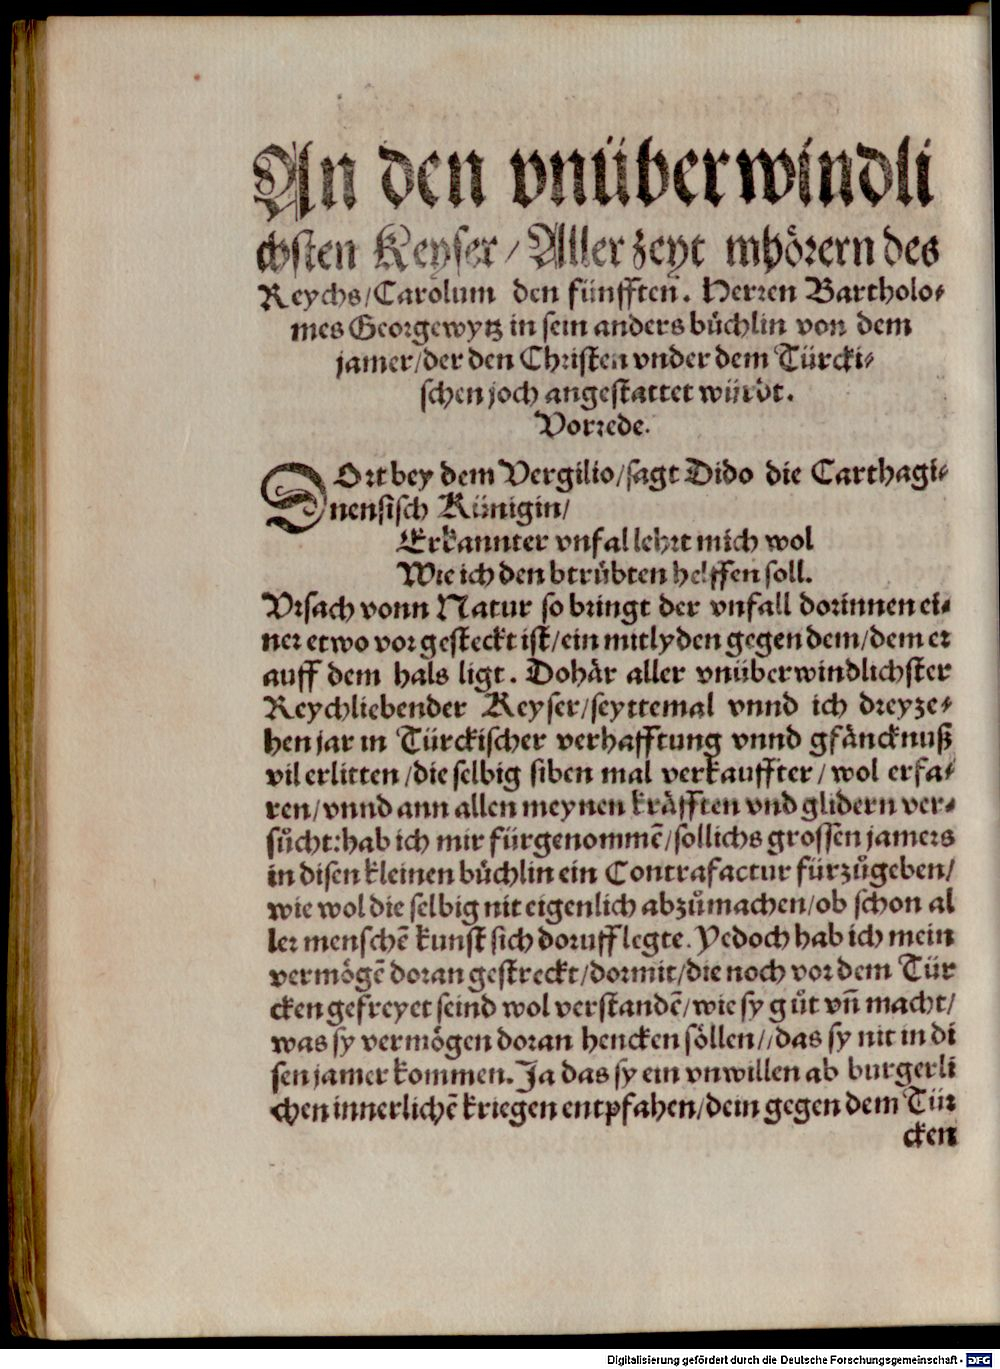 An den vnüberwindli
chsten Keyser/Aller zeyt mhörern des
Reychs/Carolum den fünfften. Herren Bartholo-
mes Georgewytz in sein anders bůchlin von dem
jamer/der den Christen vnder dem Türcki-
schen joch angestattet würdt.
Vorrede.
DOrt bey dem Vergilio/sagt Dido die Carthagi-
nensisch Künigin/
Erkannter vnfal lehrt mich wol
Wie ich den btrübten helffen soll.
Vrsach vonn Natur so bringt der vnfall dorinnen ei-
ner etwo vor gesteckt ist/ein mitlyden gegen dem/dem er
auff dem hals ligt. Dohär aller vnüberwindlichster
Reychliebender Keyser/seyttemal vnnd ich dreyze-
hen jar in Türckischer verhafftung vnnd gfäncknuß
vil erlitten/die selbig siben mal verkauffter/wol erfa-
ren/vnnd ann allen meynen kräfften vnd glidern ver-
sůcht:hab ich mir fürgenommē/sollichs grossen jamers
in disen kleinen bůchlin ein Contrafactur fürzůgeben/
wie wol die selbig nit eigenlich abzůmachen/ob schon al
ler menschē kunst sich doruff legte. Yedoch hab ich mein
vermögē doran gestreckt/dormit/die noch vor dem Tür
cken gefreyet seind wol verstandē/wie sy gůt vñ macht/
was sy vermögen doran hencken söllen//das sy nit in di
sen jamer kommen. Ja das sy ein vnwillen ab burgerli
chen innerlichē kriegen entpfahen/dein gegen dem Tür
cken
Digitalisierung gefördert durch die Deutsche Forschungsgemeinschaft - DFG